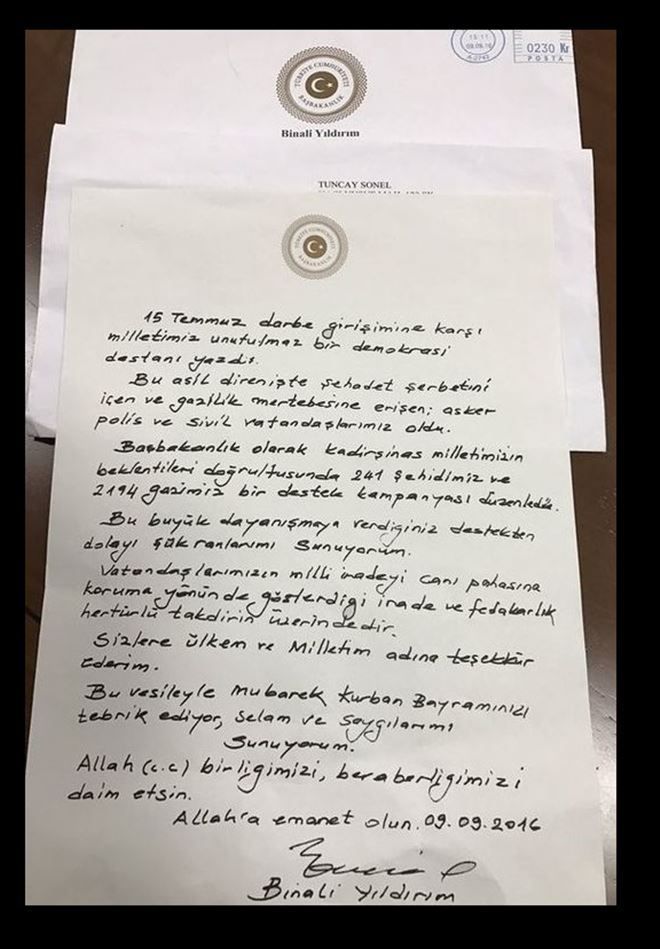 15 11
09.09.16
A-2743
0230 Kr
POSTA
TÜRKİYE CUMHURİYETİ
BAŞBAKANLIK
Binali Yıldırım
TUNCAY SONEL
TÜRKİYE CUMHURİYETİ
BAŞBAKANLIK
15 Temmuz darbe girişimine karşı
milletimiz unutulmaz bir demokrasi
destanı yazdı.
Bu asil direnişte şehadet şerbetini
içen ve gazilik mertebesine erişen; asker
polis ve sivil vatandaşlarımız oldu.
Başbakanlık olarak kadirşinas milletimizin
beklentileri doğrultusunda 241 şehidimiz ve
2194 gazimiz bir destek kampanyası düzenledik.
Bu büyük dayanışmaya verdiginiz destekten
dolayı şükranlarımı sunuyorum.
Vatandaşlarımızın milli iradeyi canı pahasına
koruma yönünde gösterdigi irade ve fedakarlık
hertürlü takdirin üzerindedir.
Sizlere ülkem ve Milletim adına teşekkür
Ederim.
Bu vesileyle mubarek Kurban Bayramınızı
tebrik ediyor, selam ve saygılarımı
Sunuyorum.
Allah (c.c) birligimizi, beraberligimizi
daim etsin.
Allah'a emanet olun. 09.09.2016
Binali Yıldırım